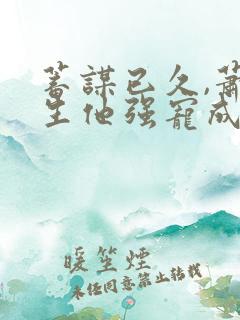 蓄謀已久,蕭
生他强寵成
暖笙煙
未經同意禁止轉載